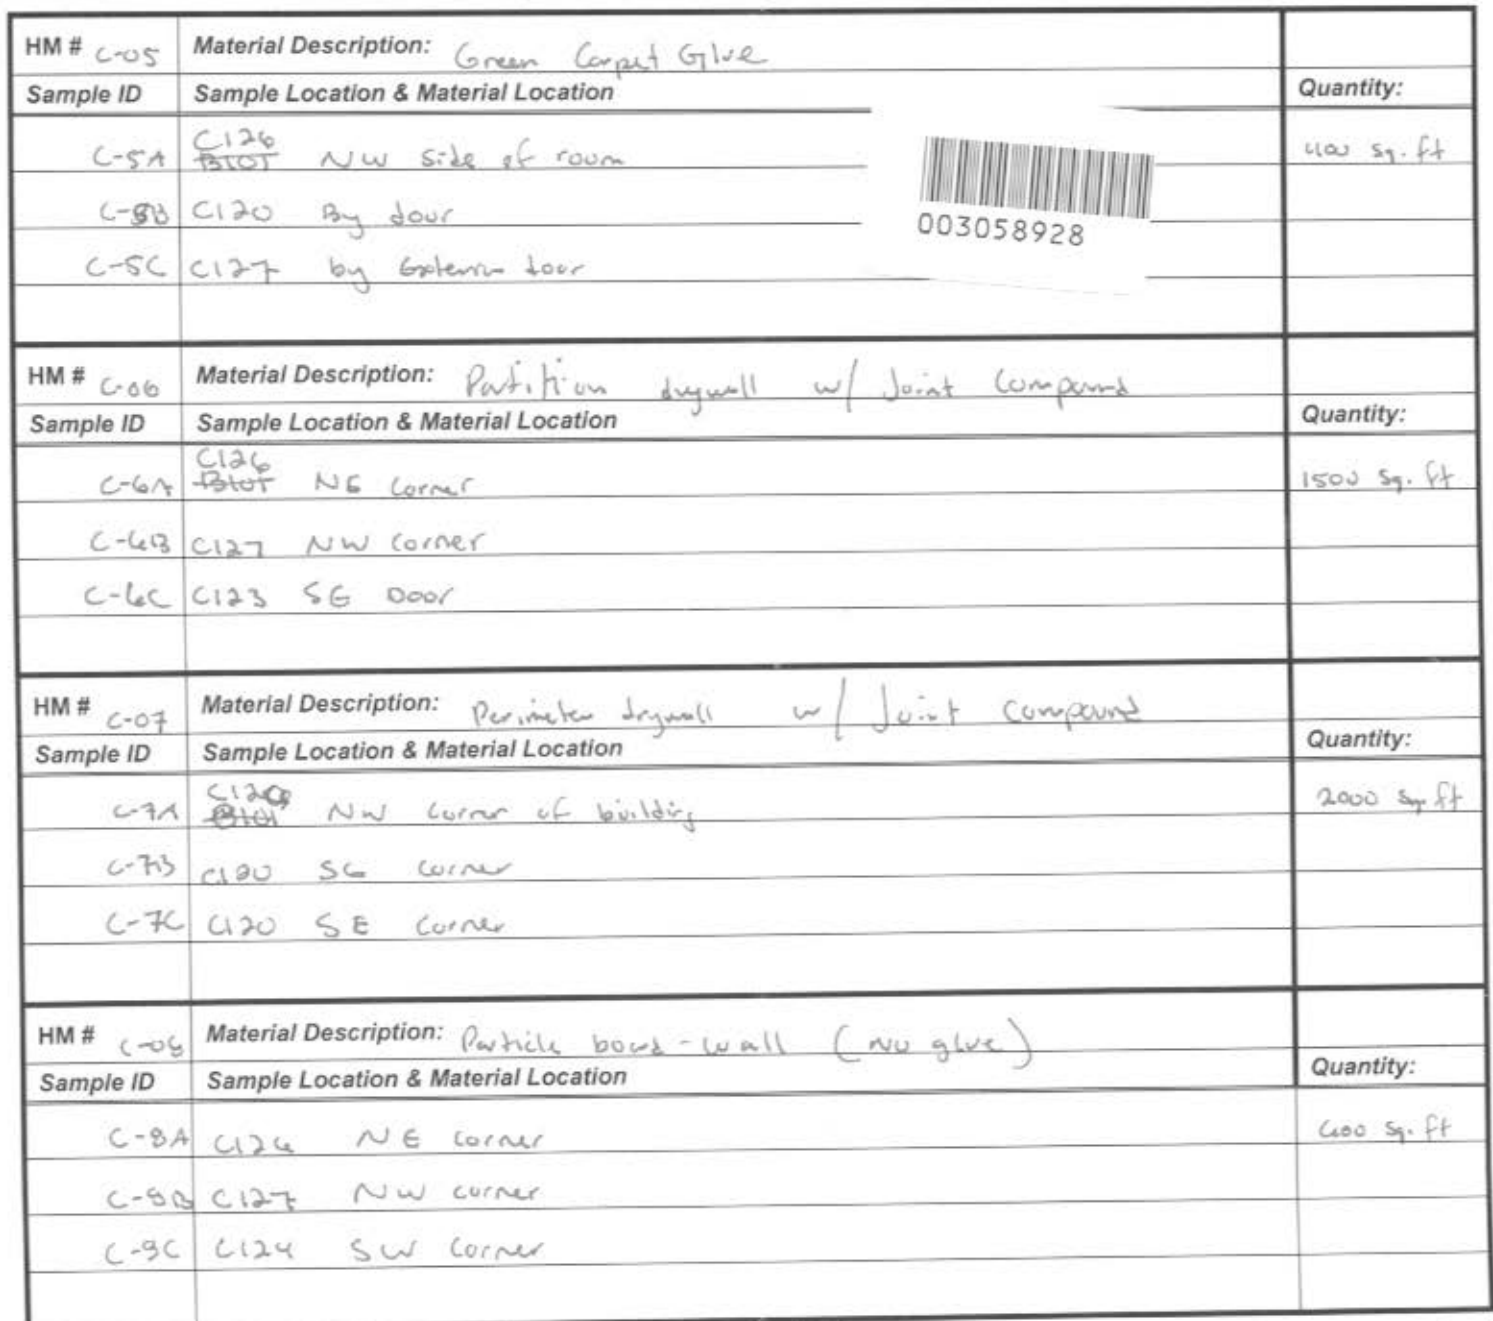 HM # C-05 Material Description: Green Carpet Glue
Sample ID Sample Location & Material Location Quantity:
C-5A C126 B101 NW side of room 400 sq. ft
C-5B C120 By door
C-5C C127 by Exterior door
003058928
HM # C-06 Material Description: Partition drywall w/ Joint Compound
Sample ID Sample Location & Material Location Quantity:
C-6A C126 B101 NE corner 1500 sq. ft
C-6B C127 NW corner
C-6C C123 SE Door
HM # C-07 Material Description: Perimeter drywall w/ Joint Compound
Sample ID Sample Location & Material Location Quantity:
C-7A B101 NW corner of building 2000 sq. ft
C-7B C120 SE corner
C-7C C120 SE corner
HM # C-08 Material Description: Particle board - wall (no glue)
Sample ID Sample Location & Material Location Quantity:
C-8A NE corner sq. ft
C-8B C127 NW corner
C-9C C124 SW corner